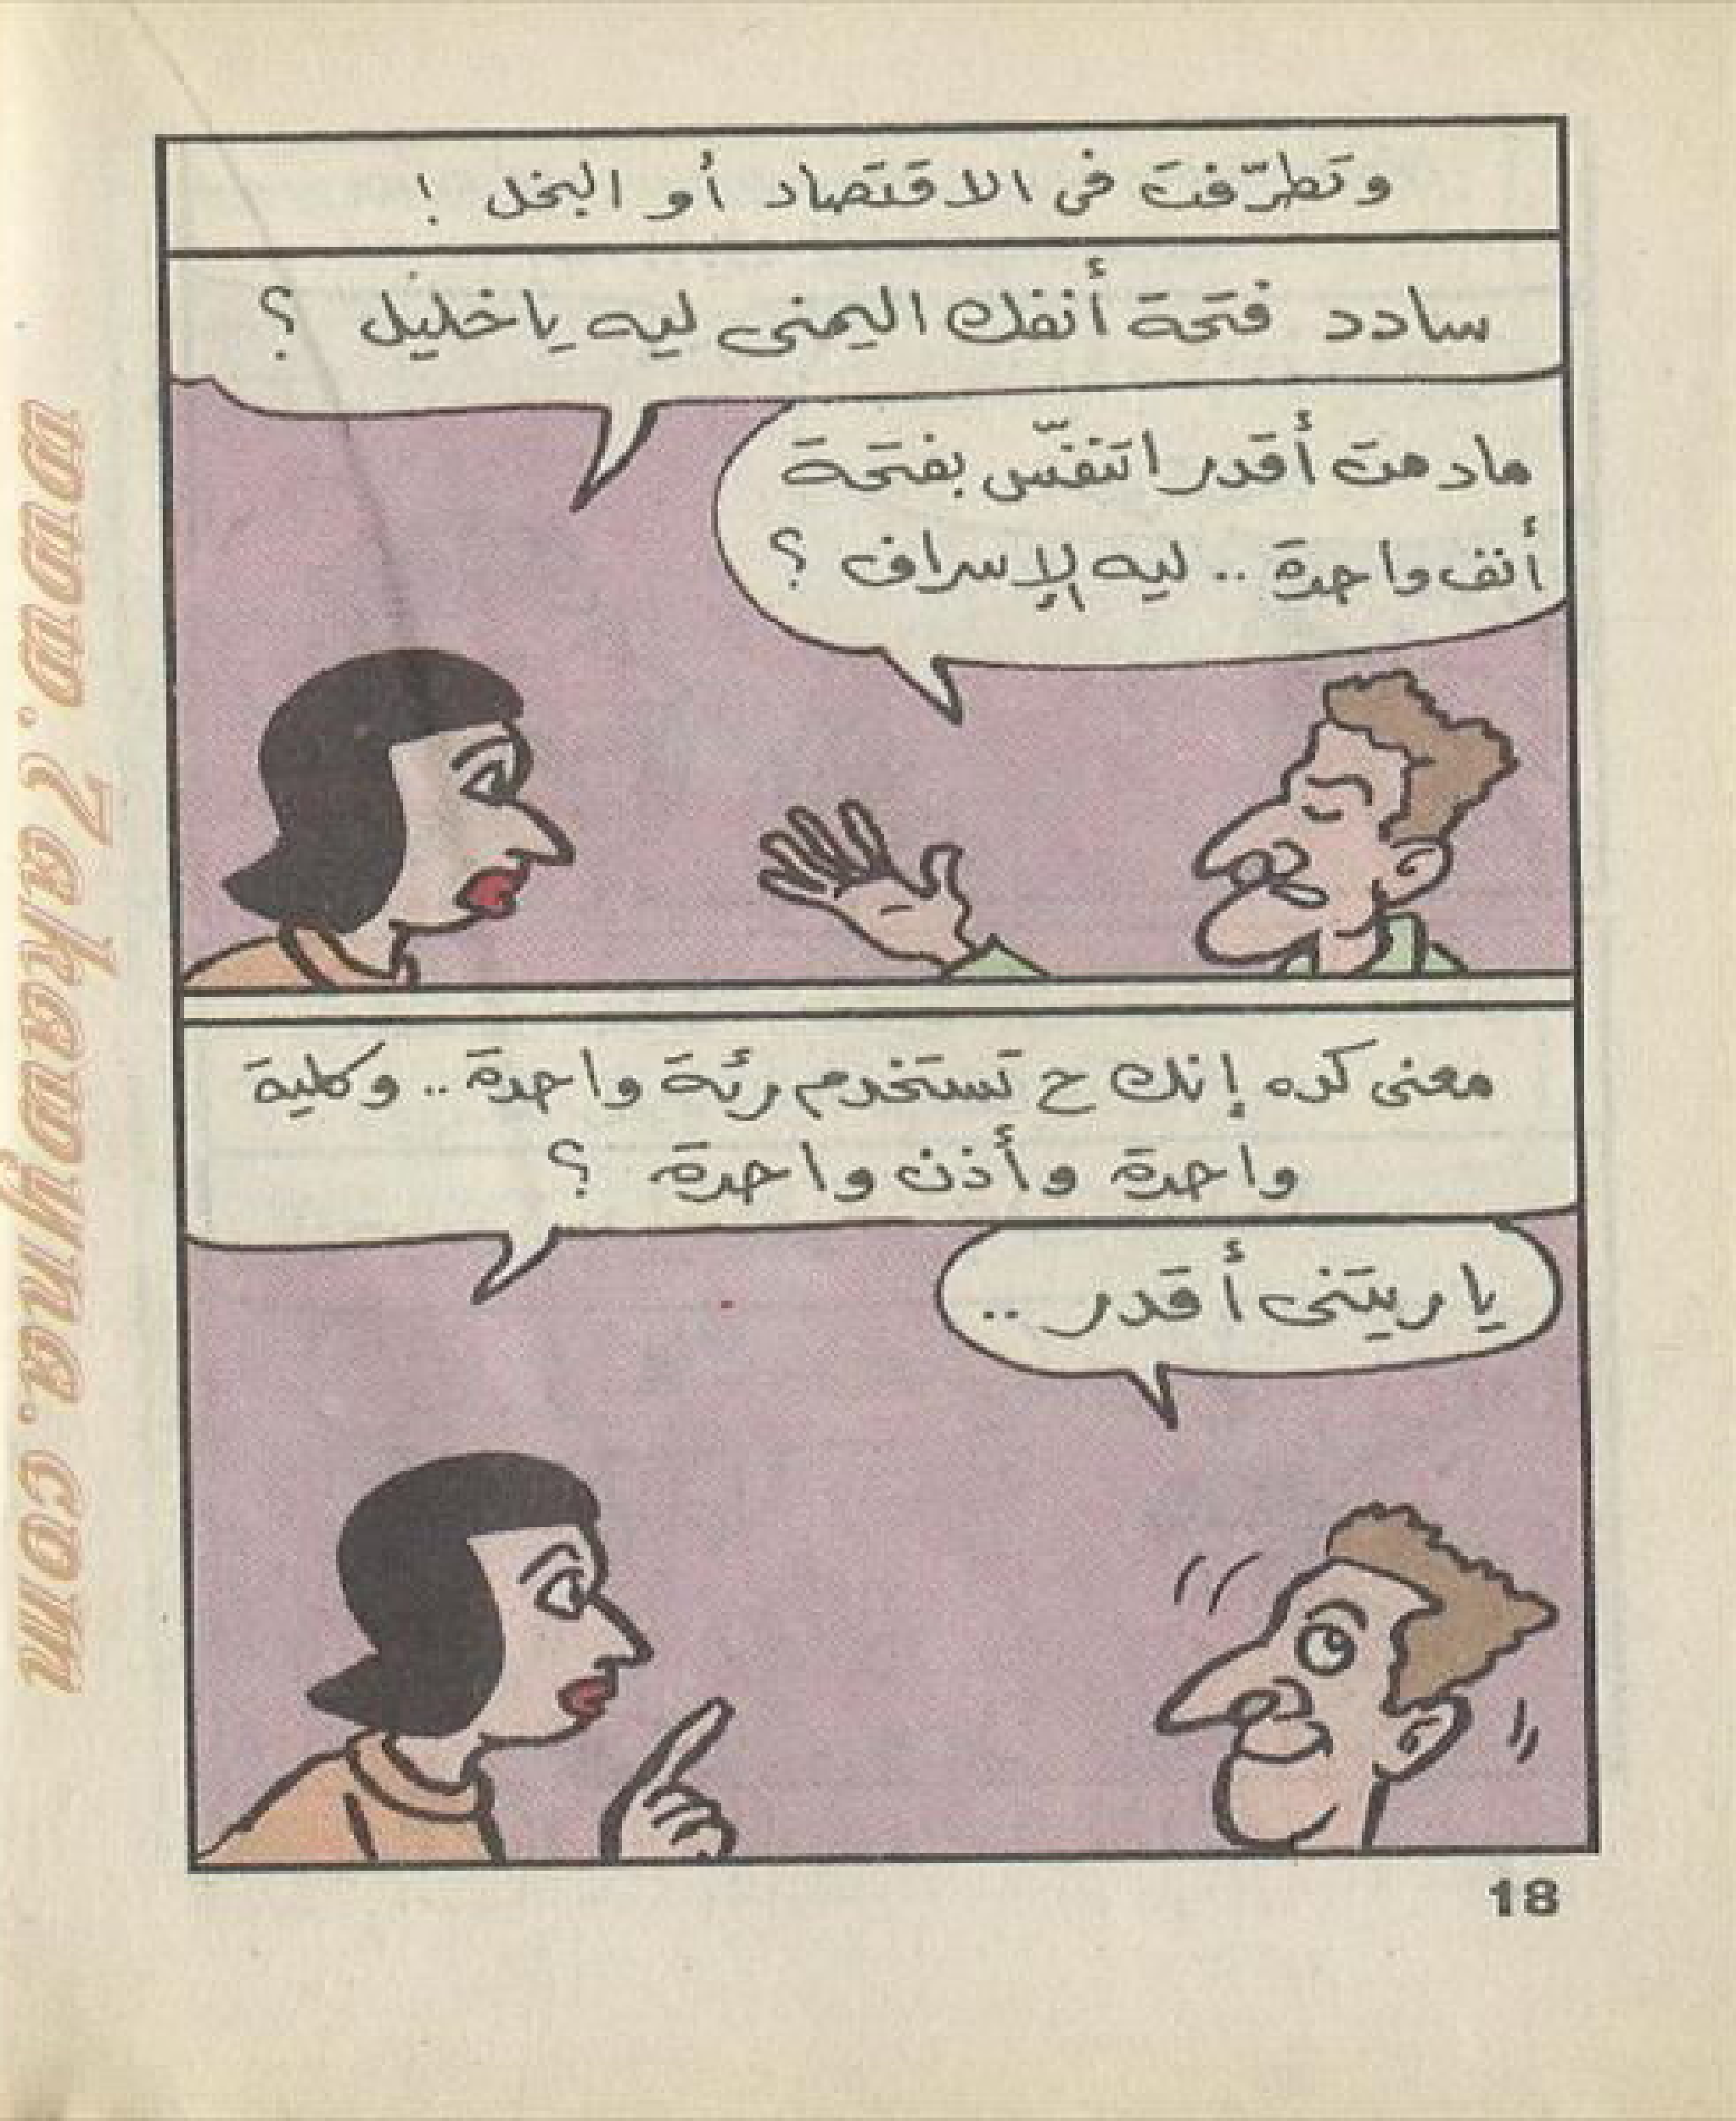 وتطرّفت فى الاقتصاد أو البخل !
سادد فتحة أنفك اليمنى ليه ياخليل ؟
مادمت أقدر اتنفّس بفتحة
أنف واحدة .. ليه الإسراف ؟
معنى كده إنك ح تستخدم رئة واحدة .. وكلية
واحدة وأذن واحدة ؟
ياريتنى أقدر ..
18
www.7akawyna.com